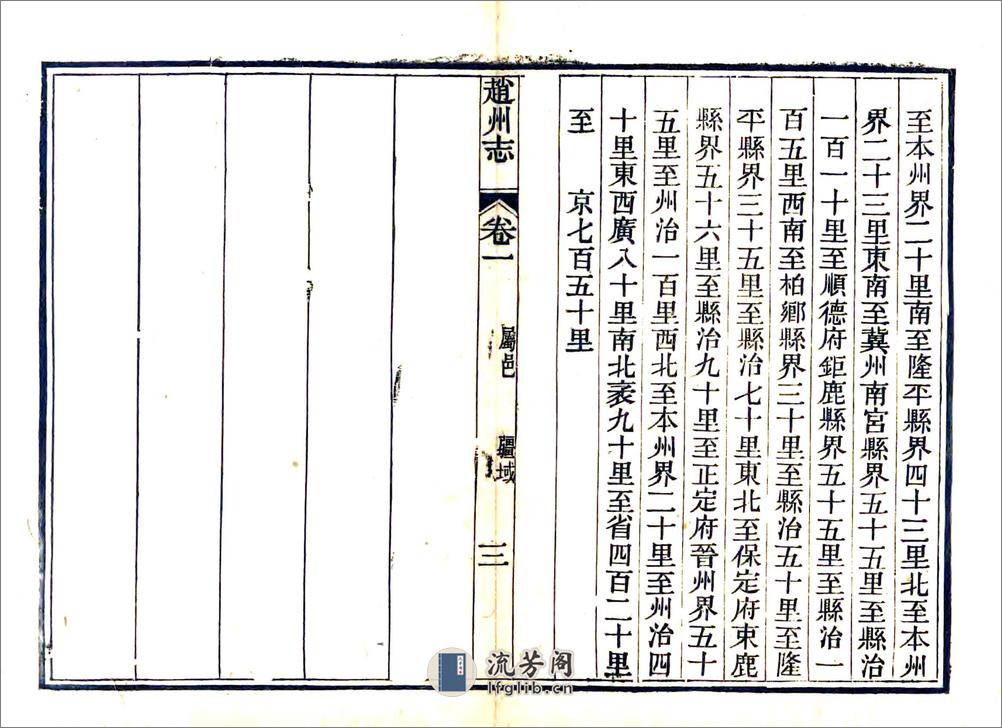 至本州界二十里南至隆平縣界四十三里北至本州
界二十三里東南至冀州南宮縣界五十五里至縣治
一百一十里至順德府鉅鹿縣界五十五里至縣治一
百五里西南至柏鄉縣界三十里至縣治五十里至隆
平縣界三十五里至縣治七十里東北至保定府束鹿
縣界五十六里至縣治九十里至正定府晉州界五十
五里至州治一百里西北至本州界二十里至州治四
十里東西廣八十里南北袤九十里至省四百二十里
至　京七百五十里
趙州志　卷一　屬邑　疆域　三
流芳阁
lfglib.cn